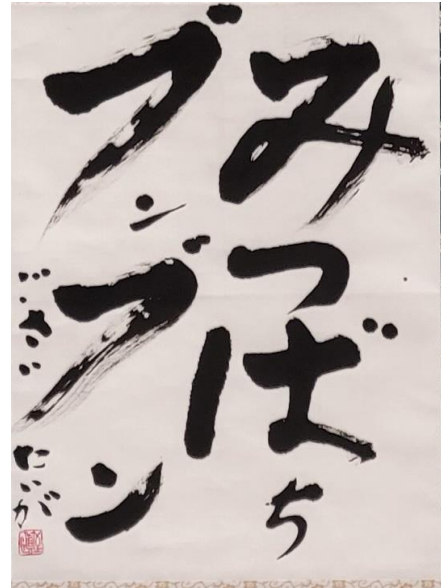 みつばち
ブンブン
ごさい たいが